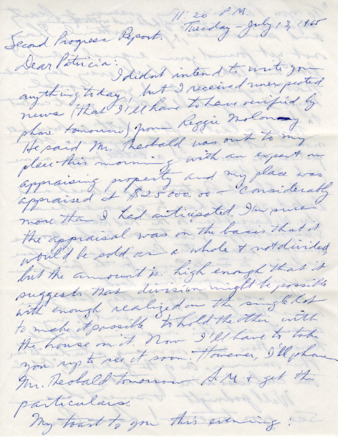 11:20 P.M.
Tuesday - July 13, 1965
Second Progress Report.
Dear Patricia:
I didn't intend to write you
anything today, but I received unexpected
news (that I'll have to have verified by
phone tomorrow) from Reggie Molonay
He said Mr. Theobald was out to my
place this morning with an expert on
appraising property and my place was
appraised at $25000.00 - Considerably
more than I had anticipated. I'm
the appraisal was on the basis that it
would be sold as a whole & not divided
but the amount is high enough that it
suggests that division might be possible
with enough realized on the single lot
to make it possible to hold the other with
the house on it. Now I'll have to take
you up to see it soon. However, I'll phone
Mr. Theobald tomorrow A.M. & get the
particulars.
My toast to you this evening: